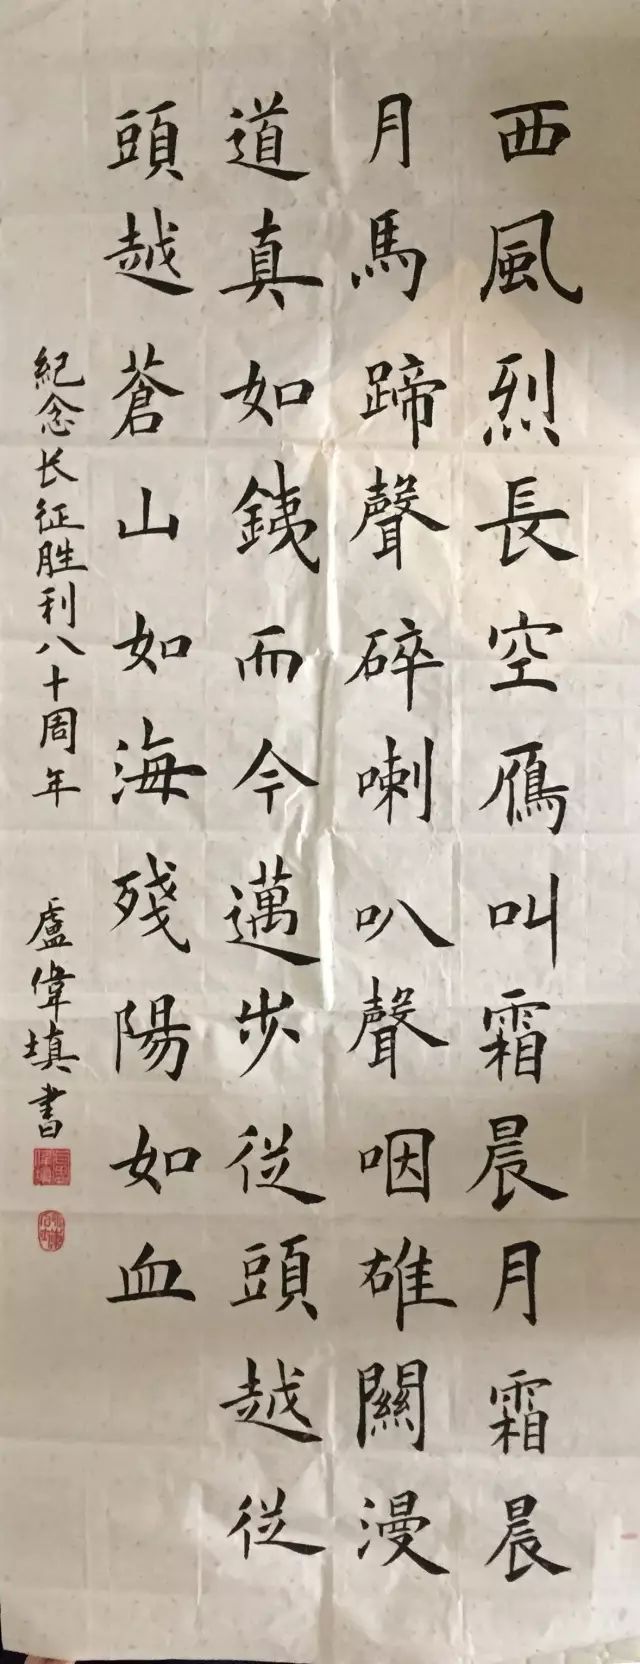 西風烈長空鴈叫霜晨月霜晨
月馬蹄聲碎喇叭聲咽雄關漫
道真如銕而今邁步從頭越從
頭越蒼山如海殘陽如血
紀念长征胜利八十周年
盧偉填書